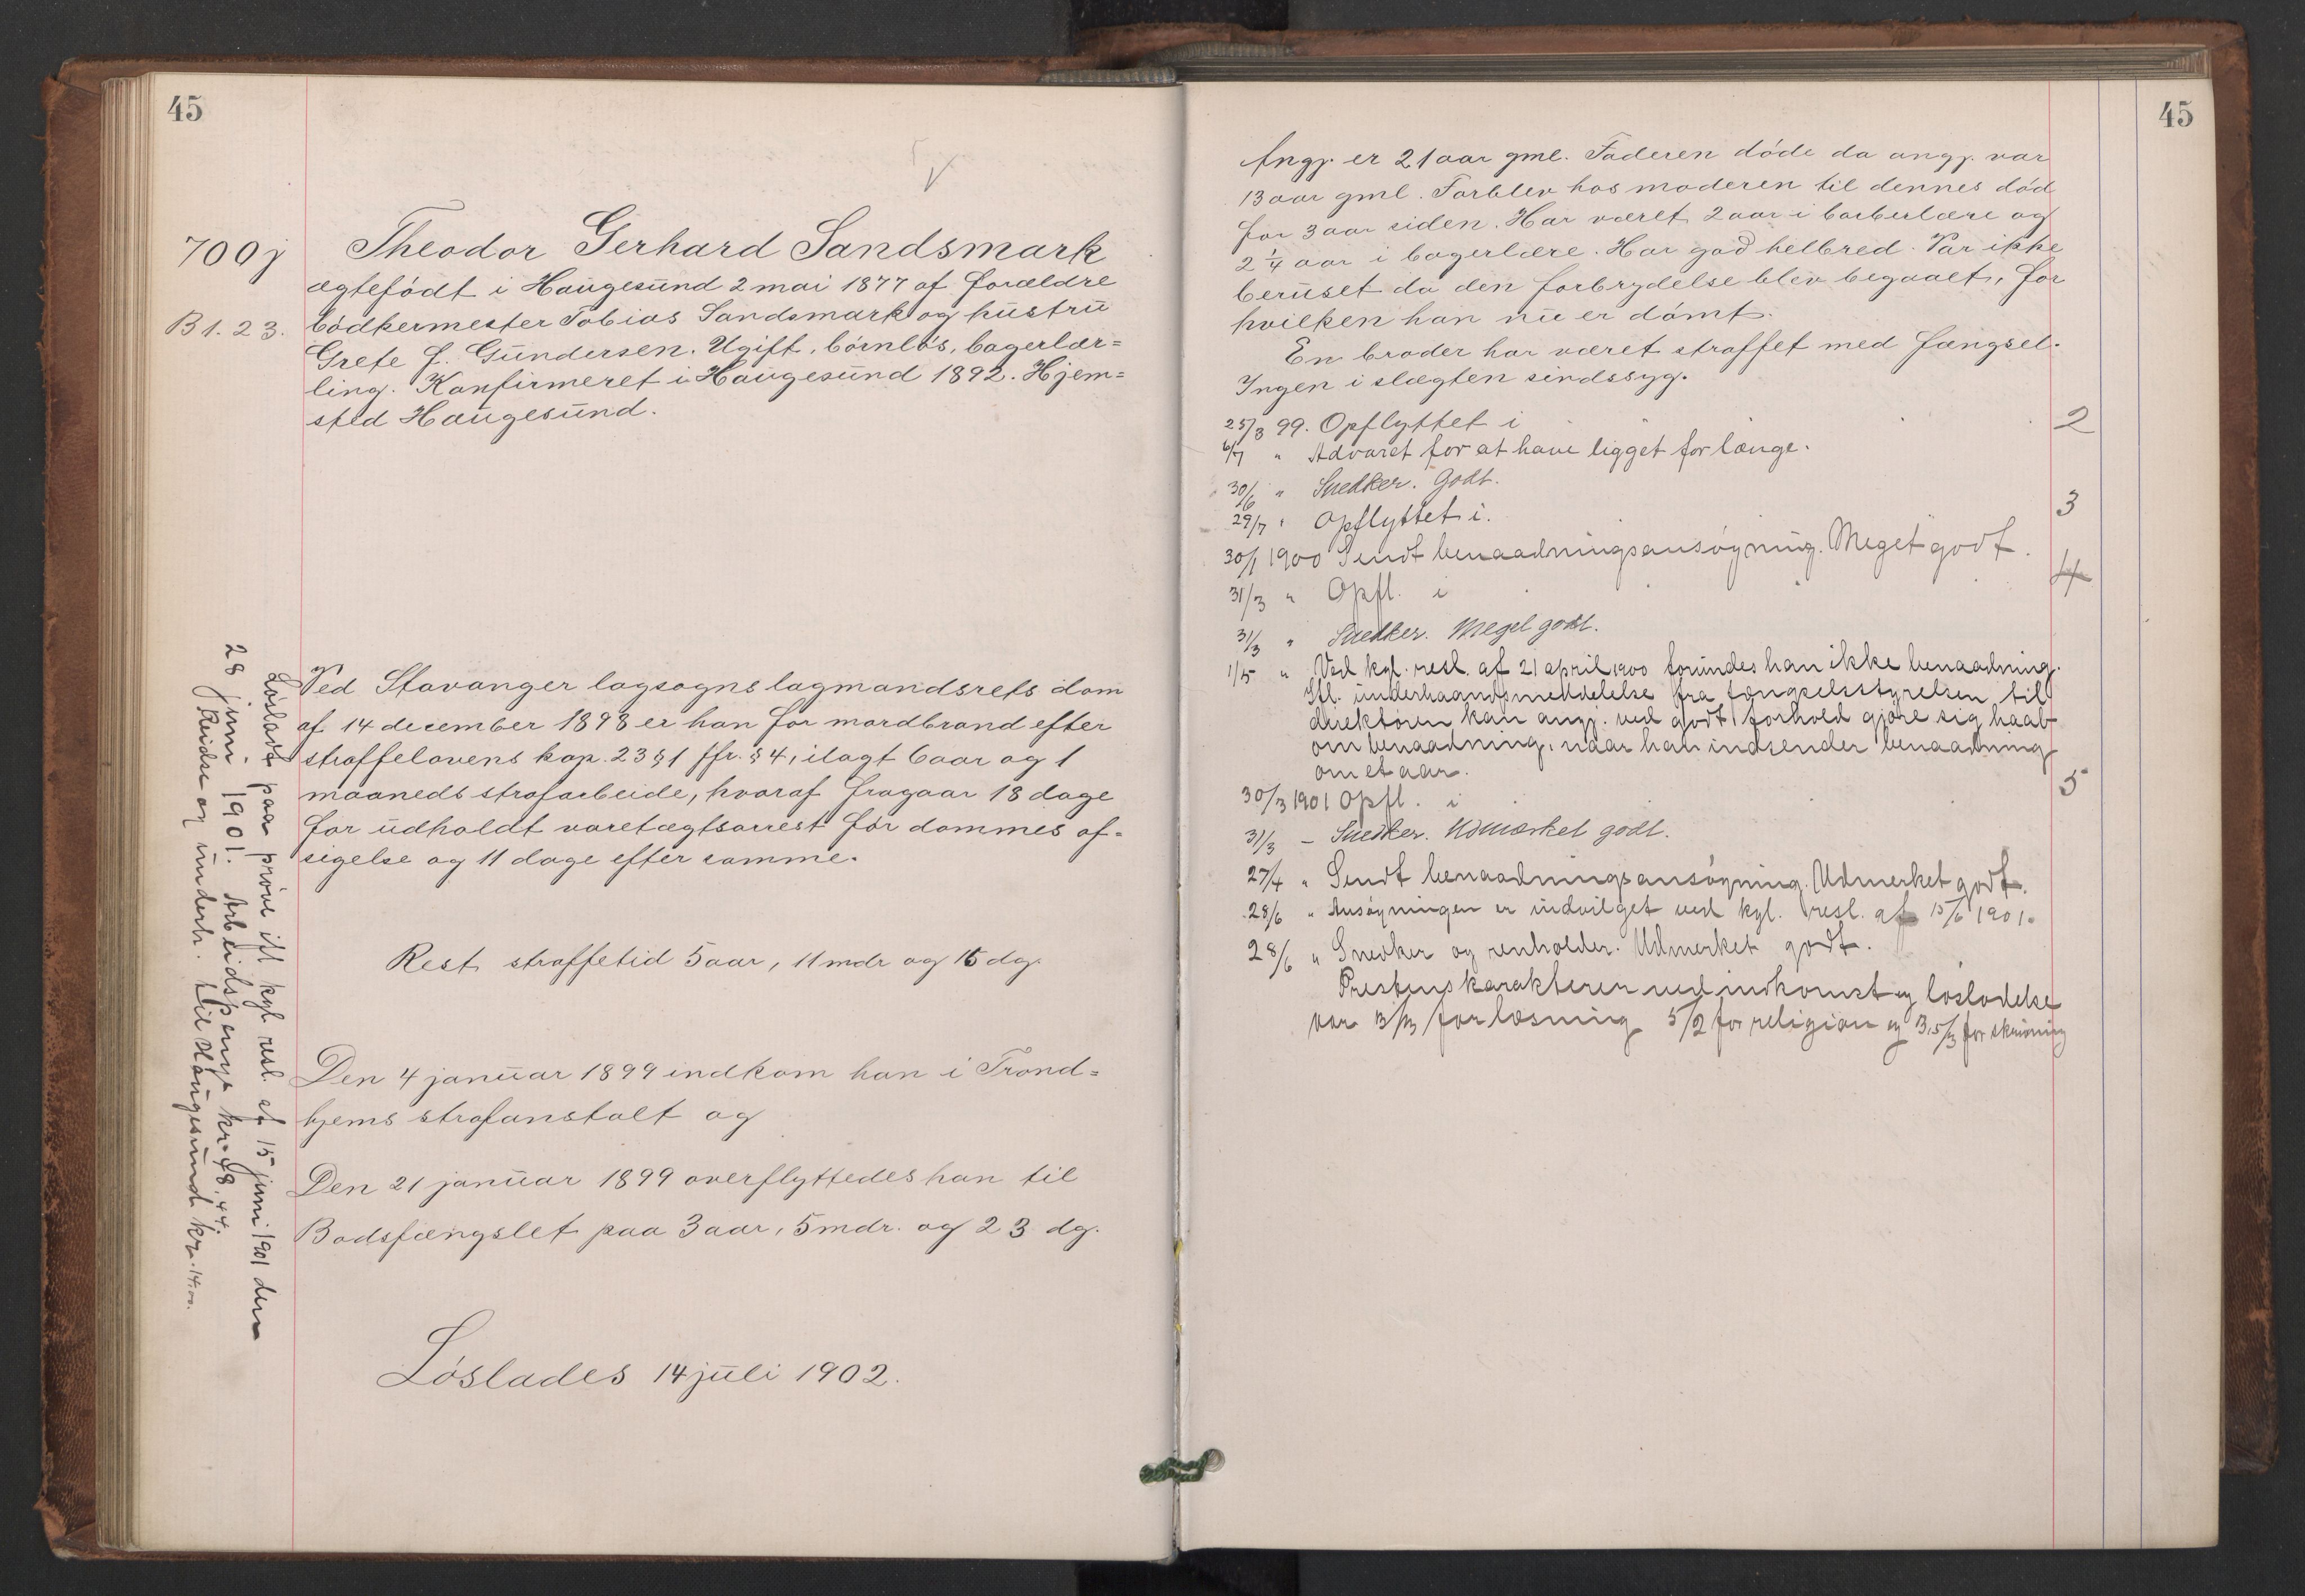 45
700 j
B 1. 23.
Theodor Gerhard Sandsmark
ægtefödt i Haugesund 2 mai 1877 af forældre
bödkermester Tobias Sandsmark og hustru
Grete f. Gundersen. Ugift, börnlös, bagerlær=
ling. Konfirmeret i Haugesund 1892. Hjem=
sted Haugesund.
Ved Stavanger lagsogns lagmandsrets dom
af 14 december 1898 er han for mordbrand efter
straffelovens kap. 23 § 1 jfr. § 4, ilagt 6 aar og 1
maaneds strafarbeide, hvoraf fragaar 18 dage
for udholdt varetægtsarrest för dommes af=
sigelse og 11 dage efter samme.
Rest straffetid 5 aar, 11 mdr og 15 dg.
Den 4 januar 1899 indkom han i Trond=
hjems strafanstalt og
Den 21 januar 1899 overflyttedes han til
Bodsfængslet paa 3 aar, 5 mdr. og 23 dg.
Löslades 14 juli 1902.
Lösladt paa pröve ifl kgl resl. af 15 juni 1901 den
28 juni 1901. Arbeidspenge kr. 48.44.
Reidse og underh. til Haugesund kr. 14.00.
45
Angj. er 21 aar gml. Faderen döde da angj. var
13 aar gml. Forblev hos moderen til dennes död
for 3 aar siden. Har været 2 aar i barberlære og
2 1/4 aar i bagerlære. Har god helbred. Var ikke
beruset da den forbrydelse blev begaaet, for
hvilken han nu er dömt.
En broder har været straffet med fængsel.
Ingen i slægten sindssyg.
25/3 99. Opflyttet i 2
6/7 " Advaret for at have ligget for længe.
30/6 " Snedker. Godt.
29/7 " Opflyttet i. 3
30/1 1900 Sendt benaadningsansögning. Meget godt.
31/3 " Opfl. i 4
31/3 " Snedker. Meget godt.
1/5 " Ved kgl. resl. af 21 april 1900 forundes han ikke benaadning.
Ifl. underhaandsmeddelelse fra fængselsstyrelsen til
direktören kan angj. ved godt forhold gjöre sig haab
om benaadning, naar han indsender benaadning
om et aar.
30/3 1901 Opfl. i 5
31/3 – Snedker. Udmærket godt.
27/4 " Sendt benaadningsansögning. Udmerket godt.
28/6 " Ansögningen er indvilget ved kgl. resl. af 15/6 1901.
28/6 " Snedker og renholder. Udmerket godt.
Prestens karakterer ved indkomst og löslatelse
var 3/3 for læsning 5/2 for religion og 3,5/3 for skrivning